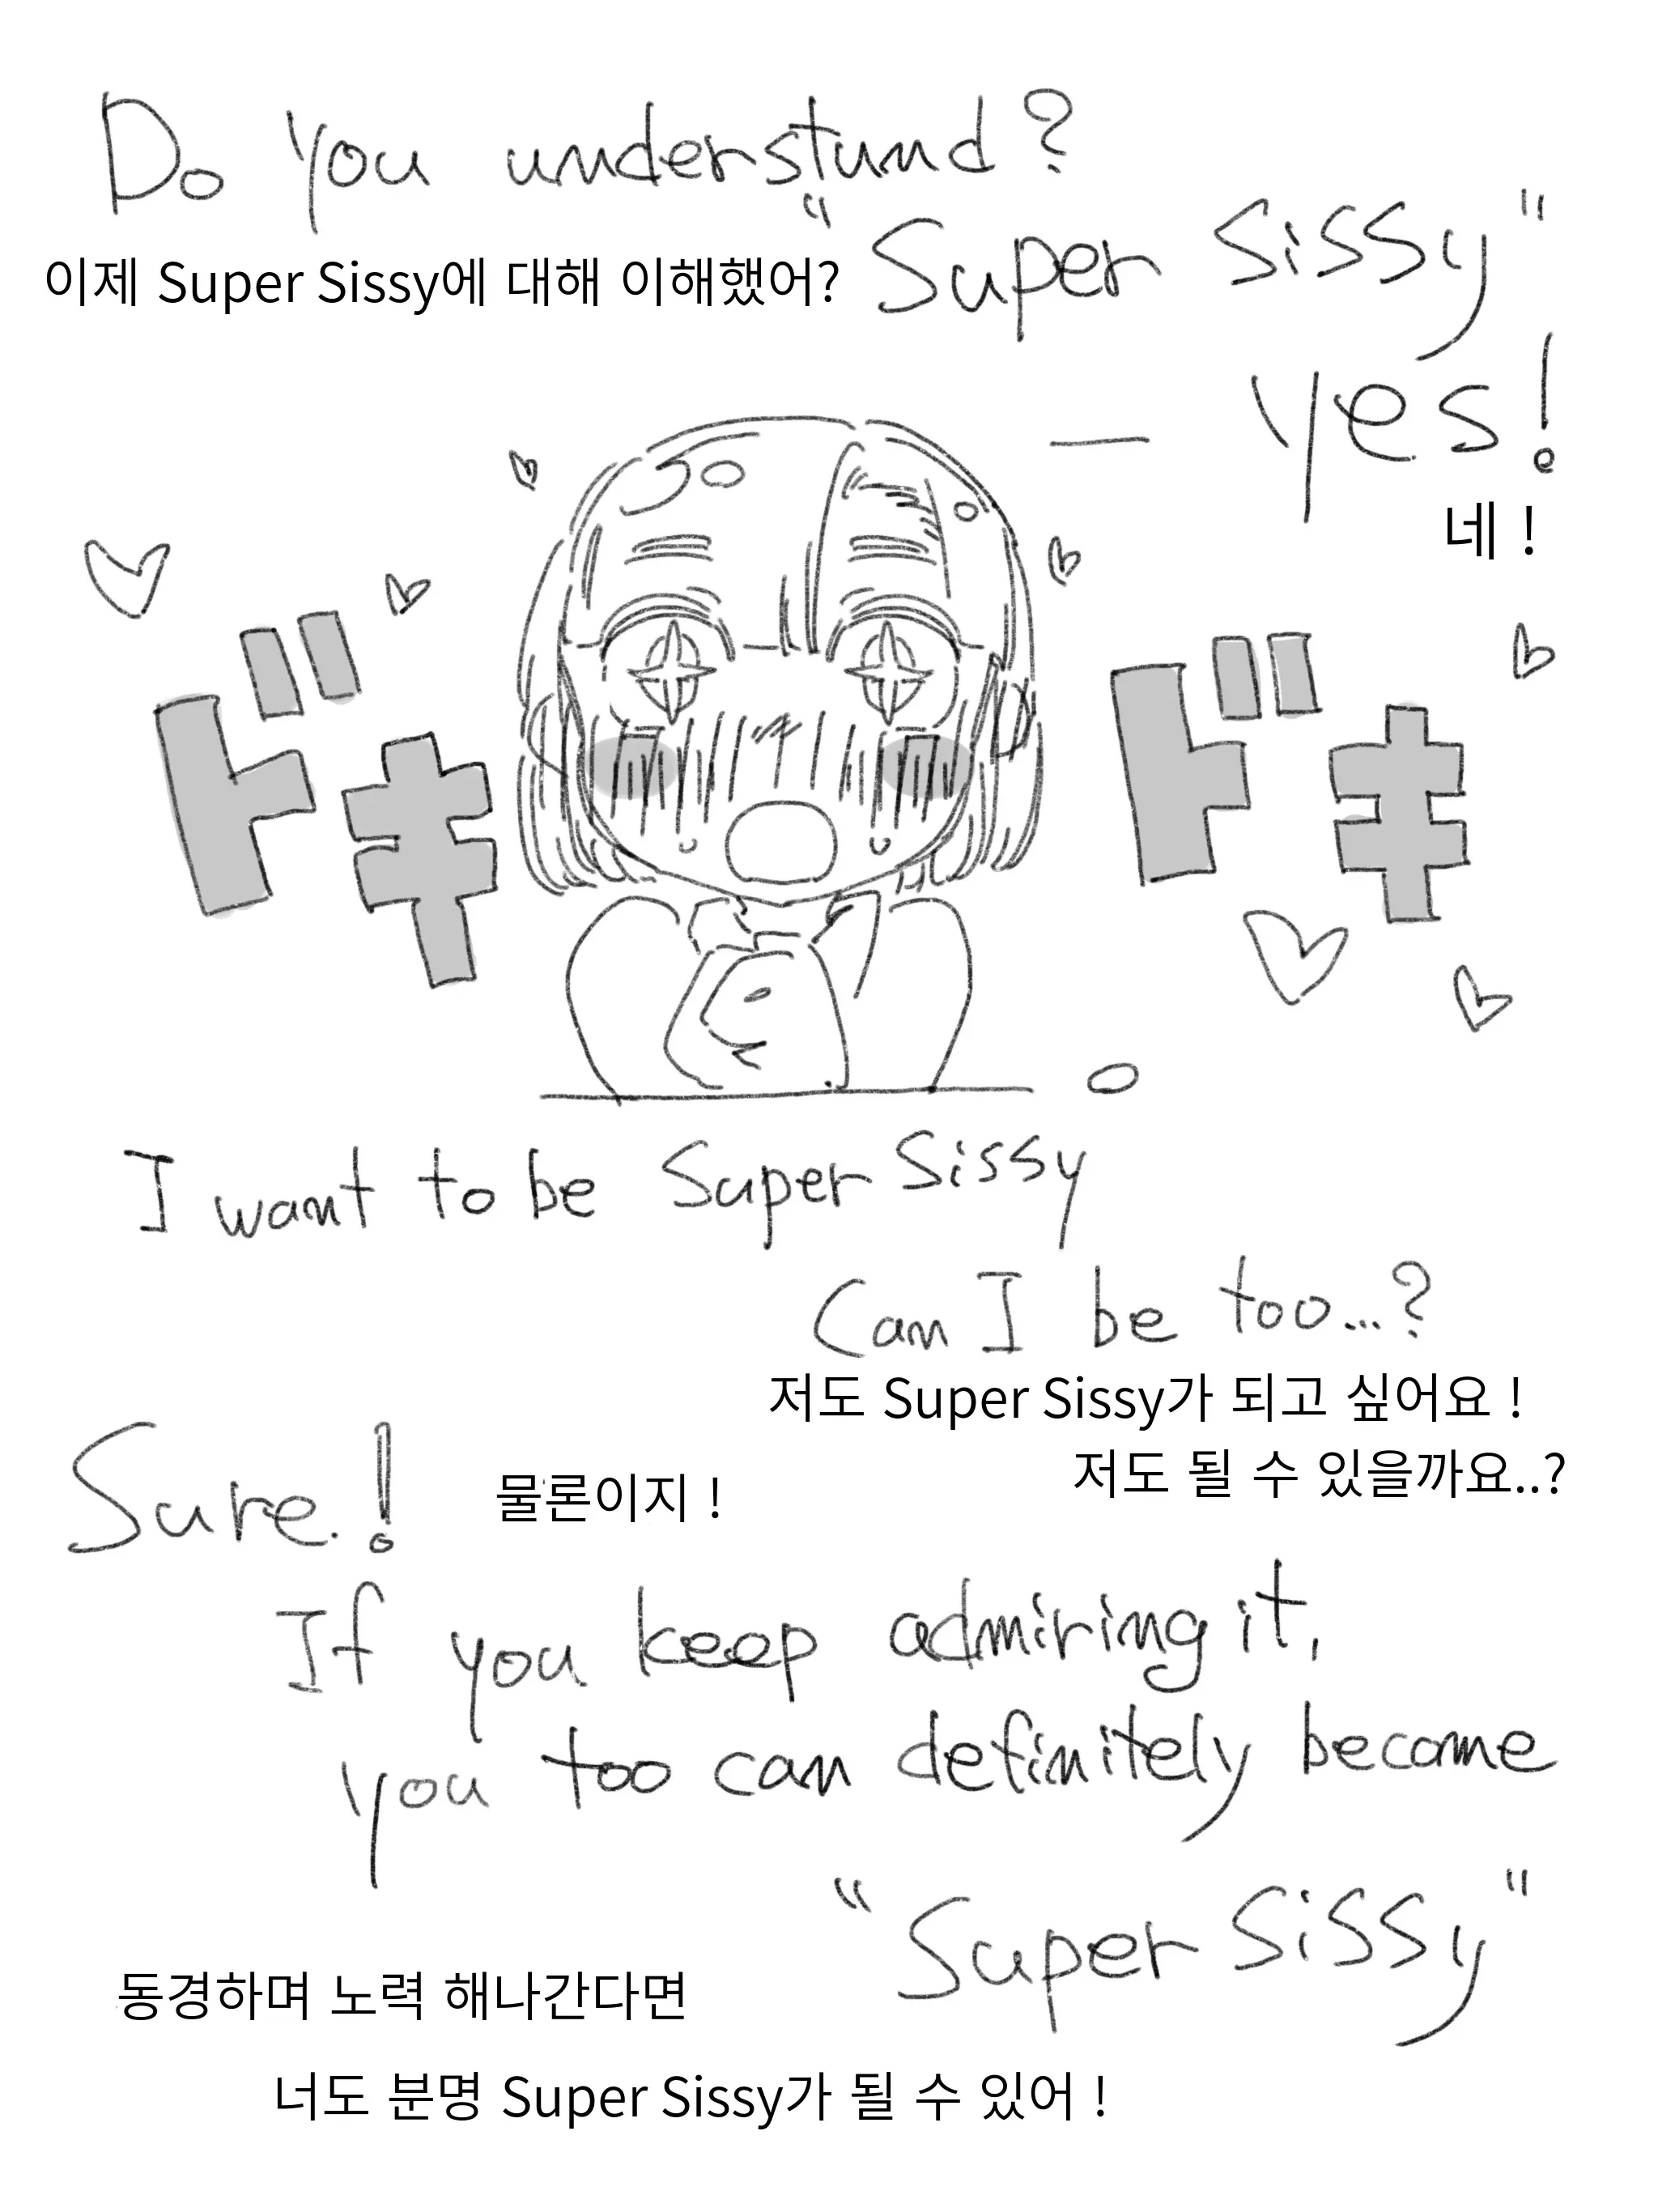 Do you understund?
"Super Sissy"
이제 Super Sissy에 대해 이해했어?
— yes!
네 !
ドキ
ドキ
I want to be Super Sissy
Can I be too...?
저도 Super Sissy가 되고 싶어요 !
저도 될 수 있을까요..?
Sure.!
물론이지 !
If you keep admiring it,
you too can definitely become
"Super Sissy"
동경하며 노력 해나간다면
너도 분명 Super Sissy가 될 수 있어 !